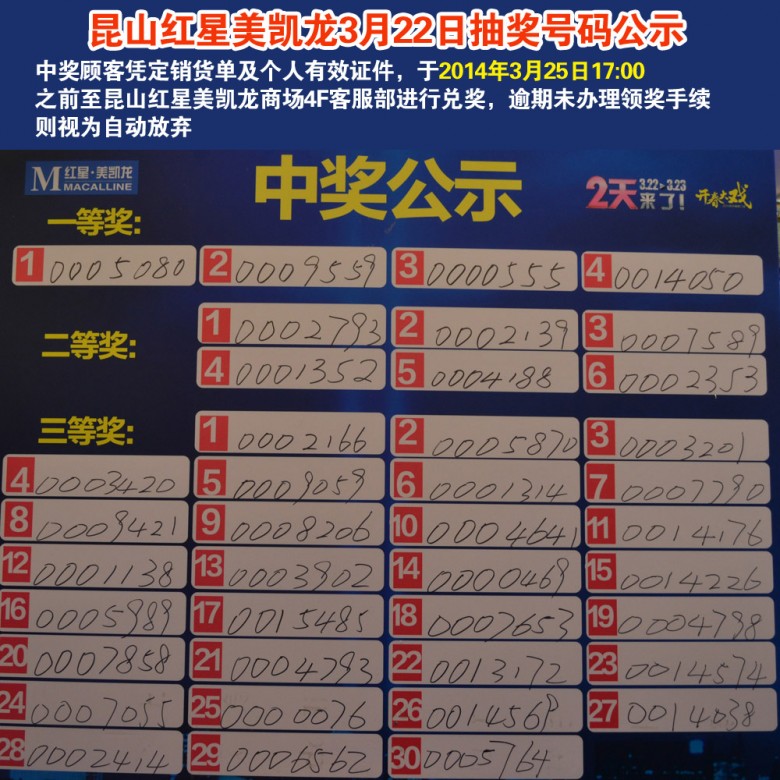 昆山红星美凯龙3月22日抽奖号码公示
中奖顾客凭定销货单及个人有效证件，于2014年3月25日17:00
之前至昆山红星美凯龙商场4F客服部进行兑奖，逾期未办理领奖手续
则视为自动放弃
M 红星·美凯龙
MACALLINE
中奖公示
2天 3.22▸3.23
来了!
开春大戏
一等奖:
1 0005080 2 0009559 3 0000555 4 0014050
二等奖:
1 0002793 2 0002139 3 0007589
4 0001352 5 0004188 6 0002353
三等奖:
1 0002166 2 0005870 3 0003201
4 0003420 5 0009059 6 0001314 7 0007790
8 0009421 9 0008206 10 0004641 11 0014176
12 0001138 13 0003902 14 0000469 15 0014226
16 0005989 17 0015485 18 0007653 19 0004798
20 0007858 21 0004793 22 0013172 23 0014574
24 0007055 25 0000076 26 0014569 27 0014038
28 0002414 29 0006562 30 0005764